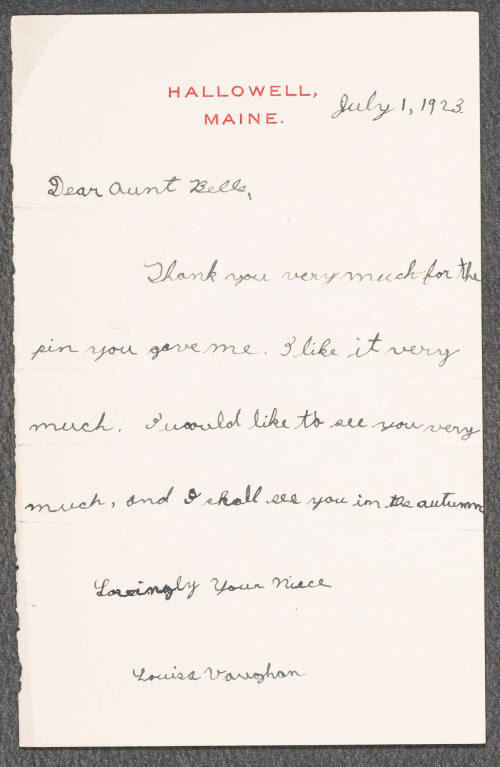 HALLOWELL,
MAINE.
July 1, 1923.
Dear Aunt Belle,
Thank you very much for the
pin you gave me. I like it very
much. I would like to see you very
much, and I shall see you in the autumn
Lovingly Your Niece
Louisa Vaughan